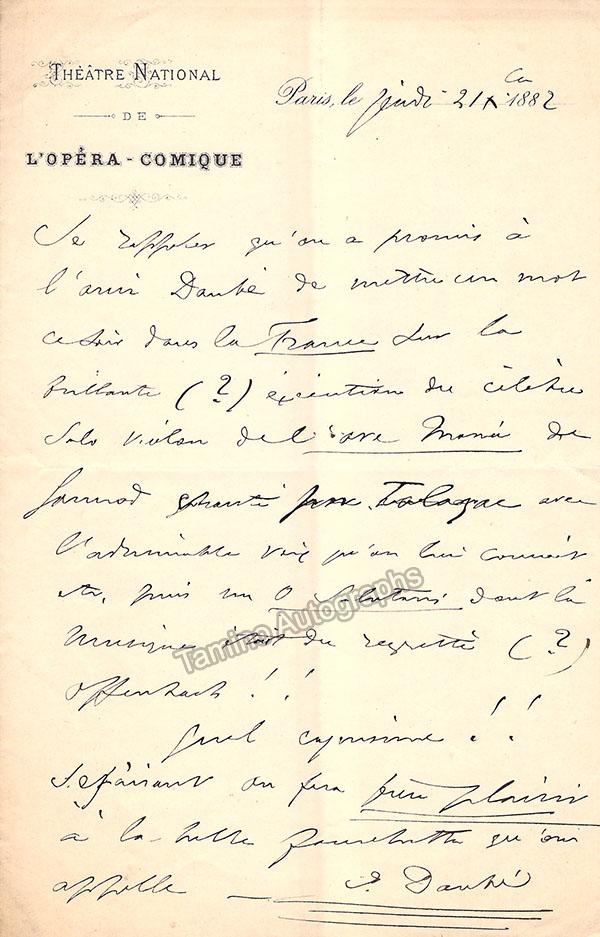 THÉÂTRE NATIONAL
DE
L'OPÉRA-COMIQUE
Paris, le jeudi 21 Xbre 1882
Se rappeler qu'on a promis à
l'ami Danbé de mettre un mot
ce soir dans la France sur la
brillante (?) exécution du célèbre
Solo violon de l'ave Maria de
Gounod chanté par Talazac avec
l'admirable voix qu'on lui connait
etc, puis un O Salutaris dont la
musique était du regretté (?)
Offenbach !!
Quel !!
Ce faisant on fera bien plaisir
à la belle fourchette qu'on
appelle — J. Danbé
Tamino Autographs